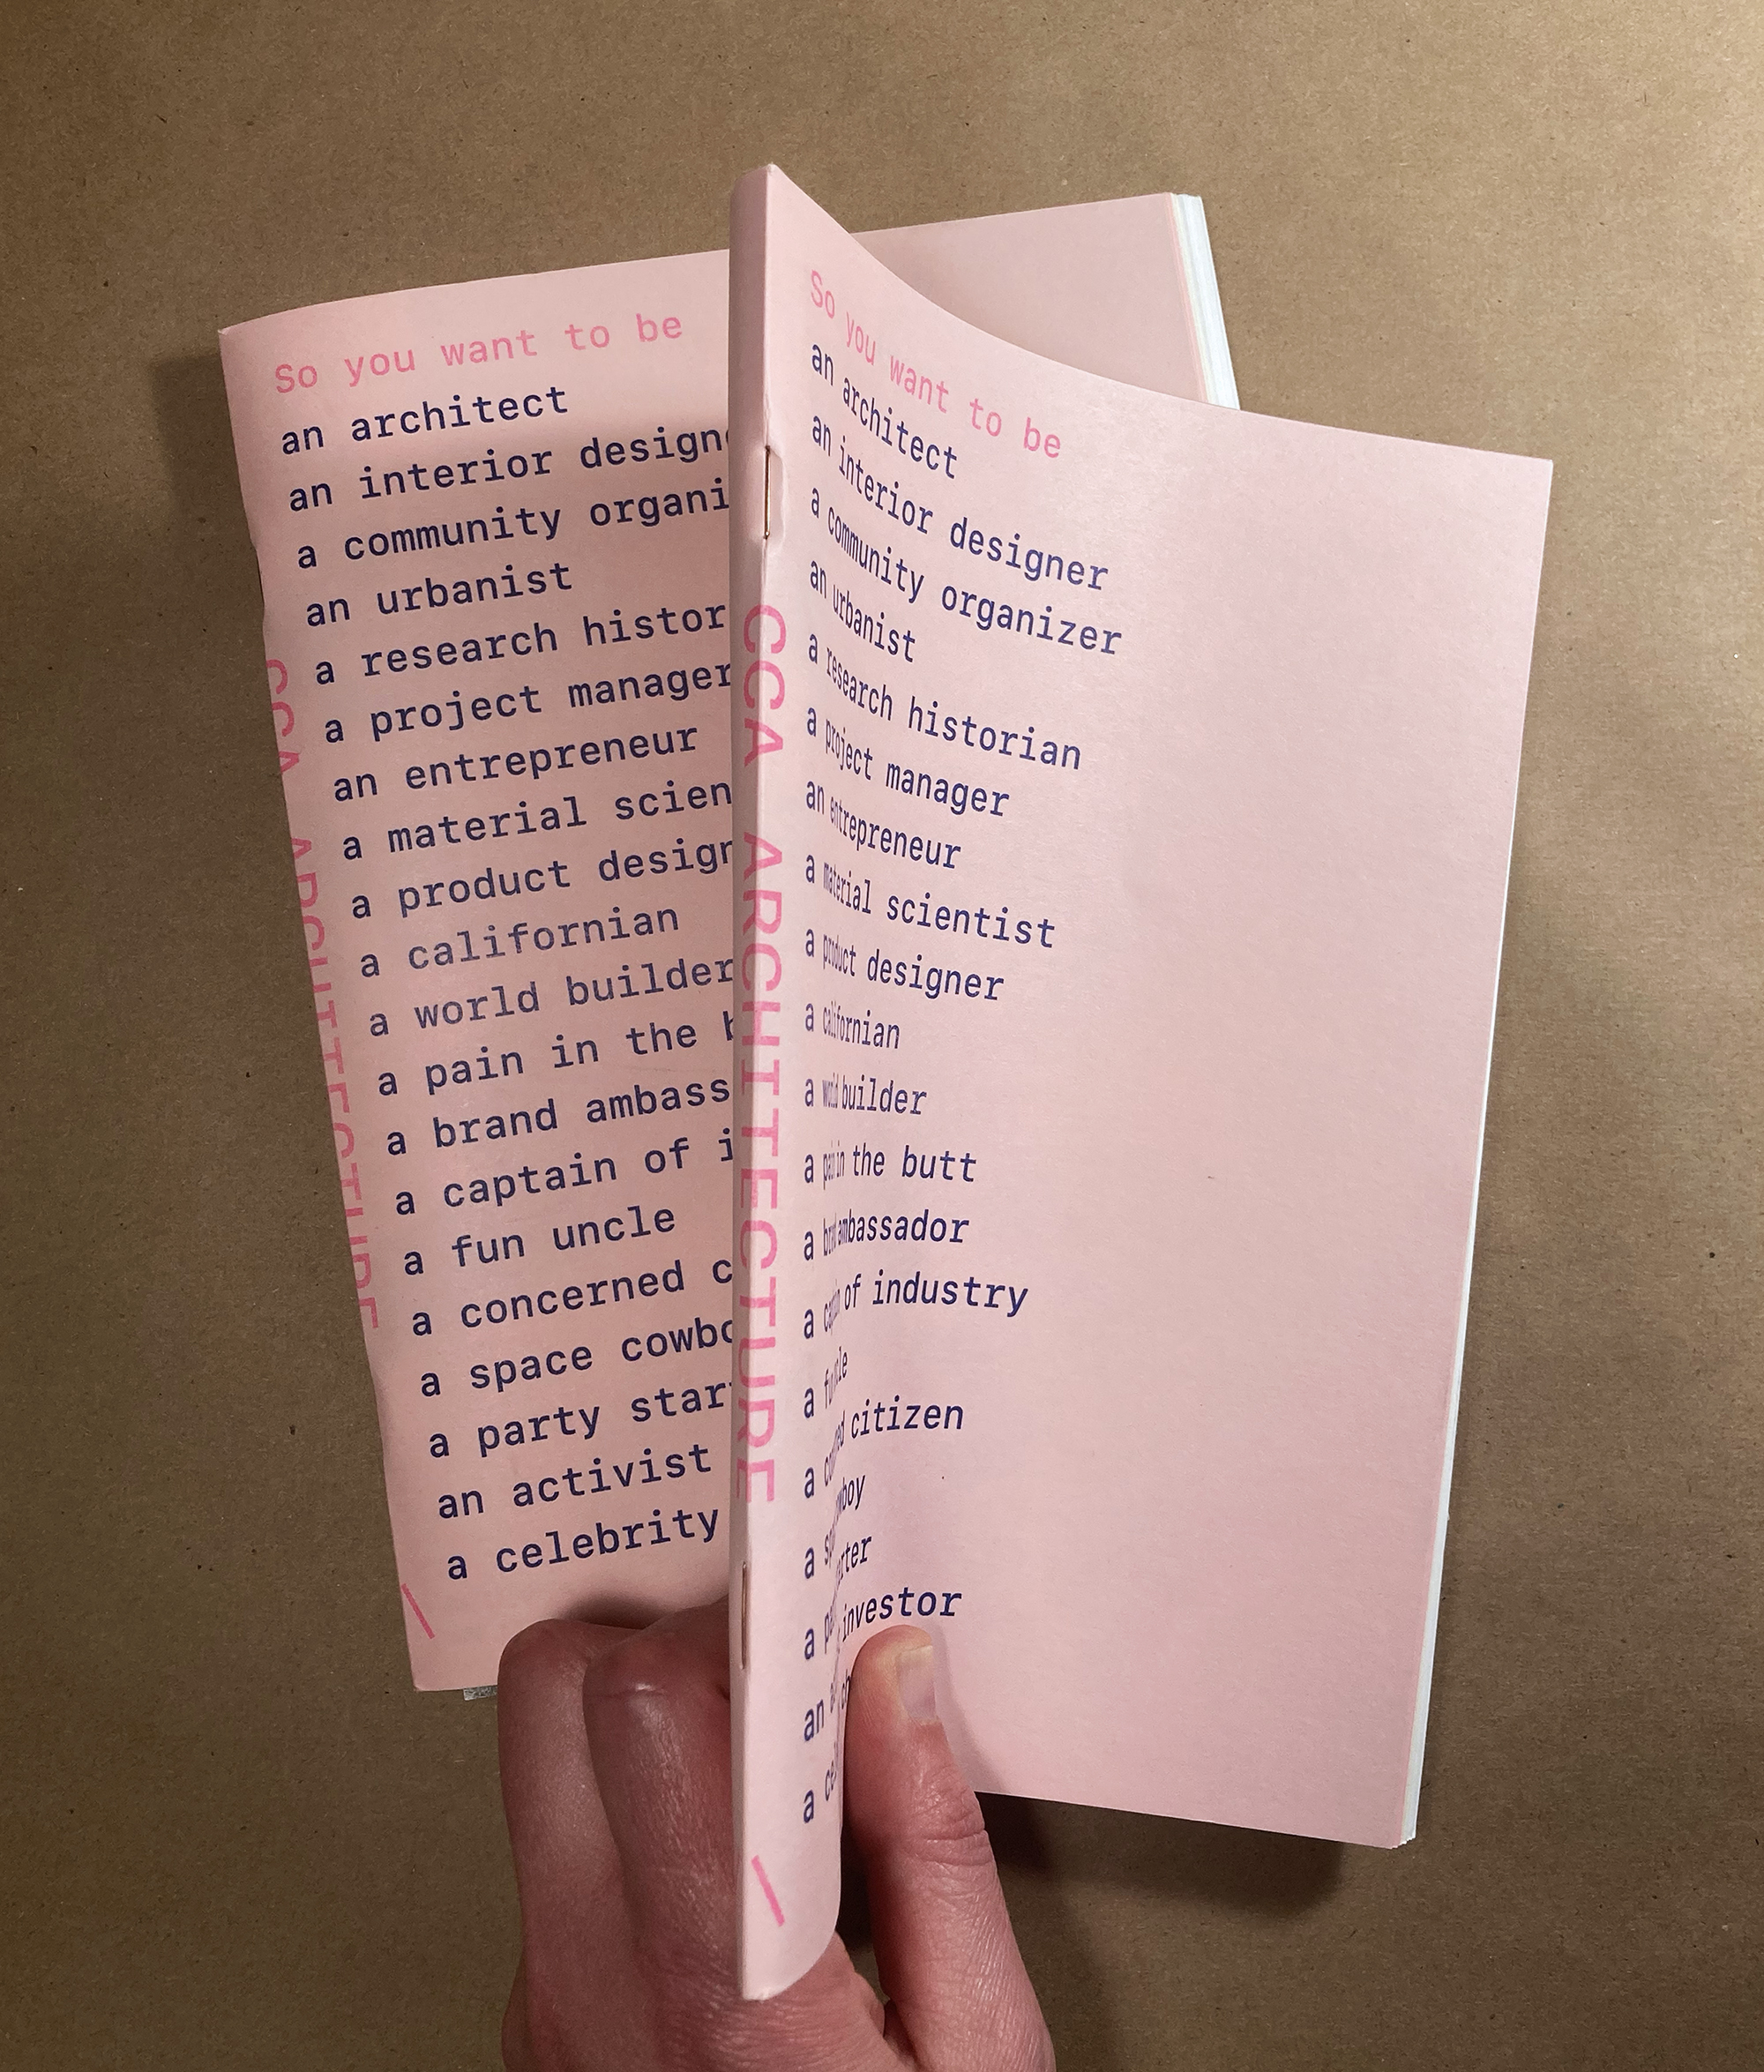 So you want to be
an architect
an interior design
a community organi
an urbanist
a research histor
a project manager
an entrepreneur
a material scien
a product design
a californian
a world builder
a pain in the b
a brand ambass
a captain of i
a fun uncle
a concerned c
a space cowbo
a party star
an activist
a celebrity
CCA ARCHITECTURE /
CCA ARCHITECTURE /
So you want to be
an architect
an interior designer
a community organizer
an urbanist
a research historian
a project manager
an entrepreneur
a material scientist
a product designer
a californian
a world builder
a pain in the butt
a brand ambassador
a captain of industry
a
a citizen
a
a
an investor
a